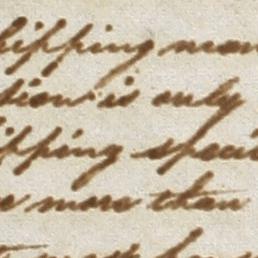 hipping mon
tion is only
ipping speci
e more than